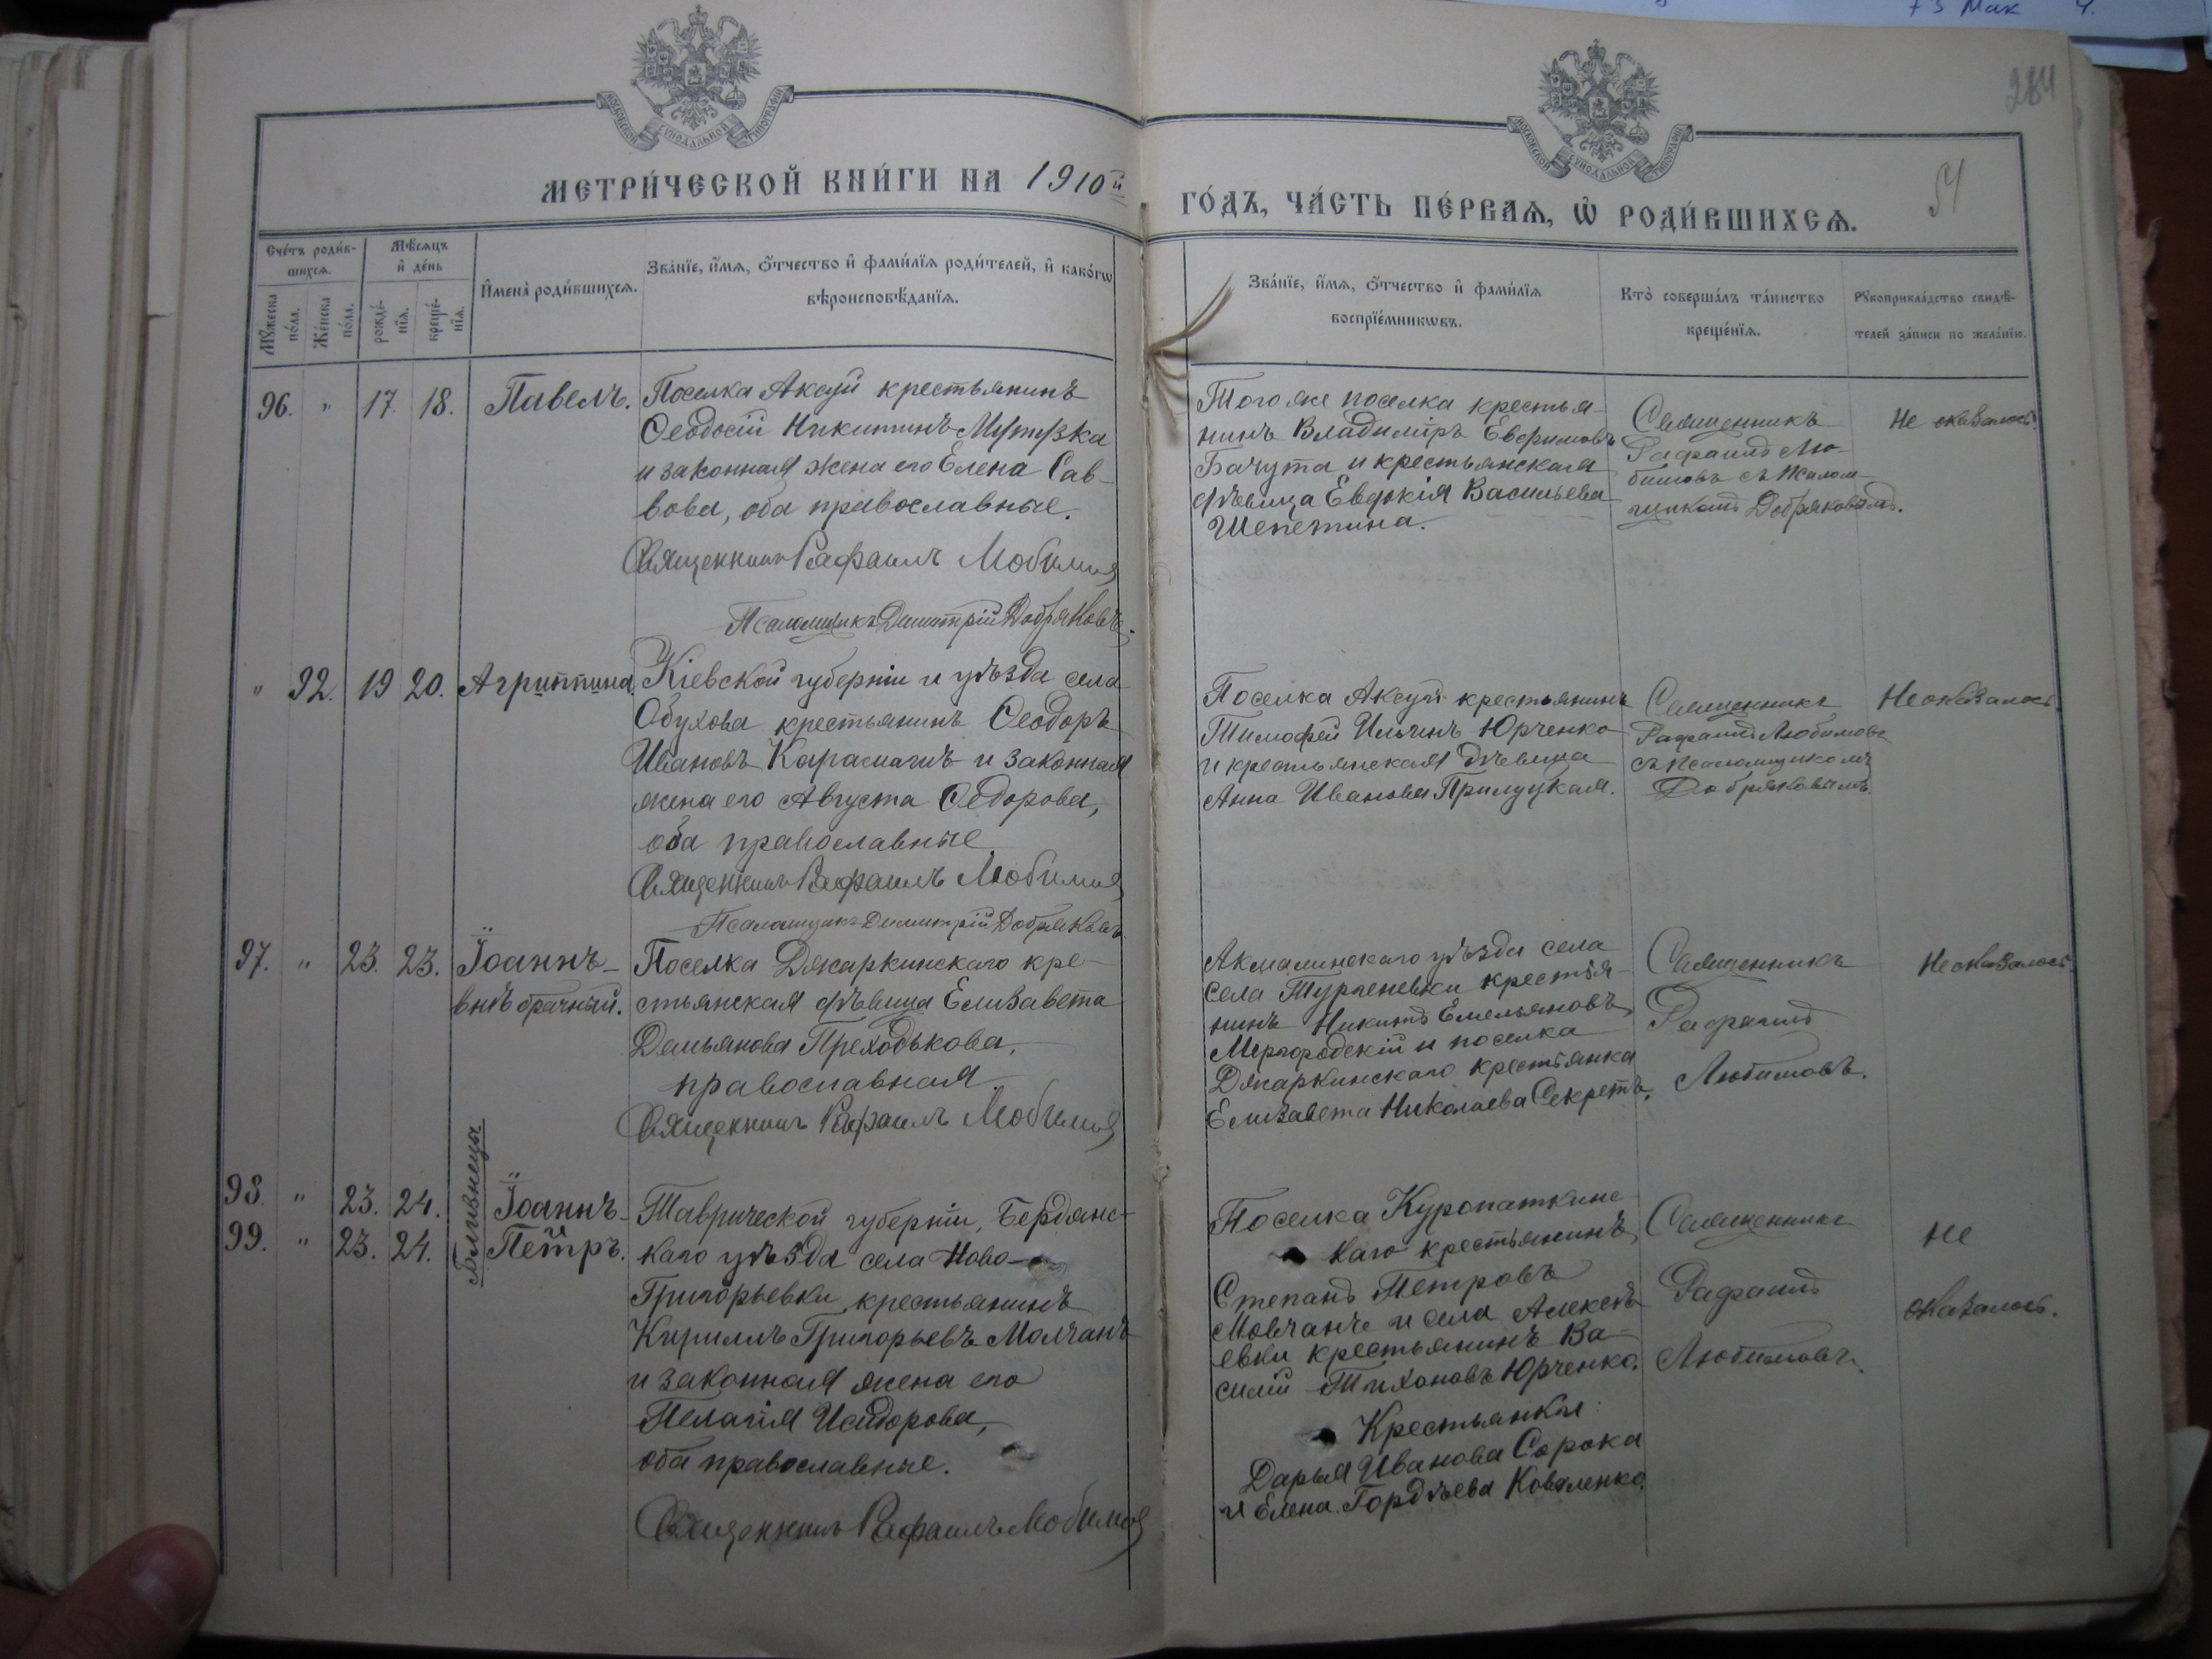 73 Мак 4.
284
МОСКОВСКОЙ СѴНОДАЛЬНОЙ ТИПОГРАФІИ
МОСКОВСКОЙ СѴНОДАЛЬНОЙ ТИПОГРАФІИ
МЕТРИ́ЧЕСКОЙ КНИ́ГИ НА 1910й
ГО́ДЪ, ЧА́СТЬ ПЕ́РВАѦ, Ѡ҆ РОДИ́ВШИХСѦ.
51
Сче́тъ роди́в-
шихсѧ.
Мѣ́сѧцъ
и҆ де́нь
Мꙋ́жеска по́ла.
Же́нска по́ла.
рожде́-
нїѧ.
креще́-
нїѧ.
И҆мена̀ роди́вшихсѧ.
Зва́нїе, и҆́мѧ, ѻ҆́тчество и҆ фами́лїѧ роди́телей, и҆ како́гѡ
вѣроисповѣ́данїѧ.
Зва́нїе, и҆́мѧ, ѻ҆́тчество и҆ фами́лїѧ
воспрїе́мникѡвъ.
Кто̀ соверша́лъ та́инство
креще́нїѧ.
Рꙋкоприкла́дство свидѣ́-
телей за́писи по жела́нїю.
96. " 17. 18. Павелъ.
Поселка Аксуй крестьянинъ
Ѳеодосій Никитинъ Мутузка
и законная жена его Елена Сав-
вова, оба православные.
Священникъ Рафаилъ Любимов
Псаломщикъ Димитрій Добряковъ.
Того же поселка крестья-
нинъ Владиміръ Евфимовъ
Бачута и крестьянская
дѣвица Евдокія Васильева
Шепетина.
Священникъ
Рафаилъ Лю-
бимовъ съ псалом-
щикомъ Добряковымъ.
Не оказалось.
" 92. 19 20. Агриппина.
Кіевской губерніи и уѣзда села
Обухова крестьянинъ Ѳеодоръ
Ивановъ Карасмачъ и законная
жена его Августа Ѳедорова,
оба православные.
Священникъ Рафаилъ Любимов
Псаломщикъ Димитрій Добряковъ
Поселка Аксуй крестьянинъ
Тимофей Ильинъ Юрченко
и крестьянская дѣвица
Анна Иванова Прилуцкая.
Священникъ
Рафаилъ Любимовъ
съ псаломщикомъ
Добряковымъ.
Не оказалось.
97. " 23. 23. Іоаннъ-
внѣбрачный.
Поселка Джаркинскаго кре-
стьянская дѣвица Елизавета
Демьянова Преходькова,
православная.
Священникъ Рафаилъ Любимов
Акмолинскаго уѣзда села
села Тургеневки крестья-
нинъ Никита Емельяновъ
Мергородскій и поселка
Джаркинскаго крестьянка
Елизавета Николаева Секретъ.
Священникъ
Рафаилъ
Любимовъ.
Не оказалось.
98. " 23. 24. Іоаннъ-
99. " 23. 24. Петръ.
Близнецы
Таврической губерніи, Бердянс-
каго уѣзда села Ново-
Григорьевки крестьянинъ
Кириллъ Григорьевъ Молчанъ
и законная жена его
Пелагія Исидорова,
оба православные.
Священникъ Рафаилъ Любимов
Поселка Куропаткинс-
каго крестьянинъ
Степанъ Петровъ
Мовчанъ и села Алексѣ-
евки крестьянинъ Ва-
силій Тихоновъ Юрченко.
Крестьянки:
Дарья Иванова Сорока
и Елена Гордѣева Коваленко.
Священникъ
Рафаилъ
Любимовъ.
Не
оказалось.